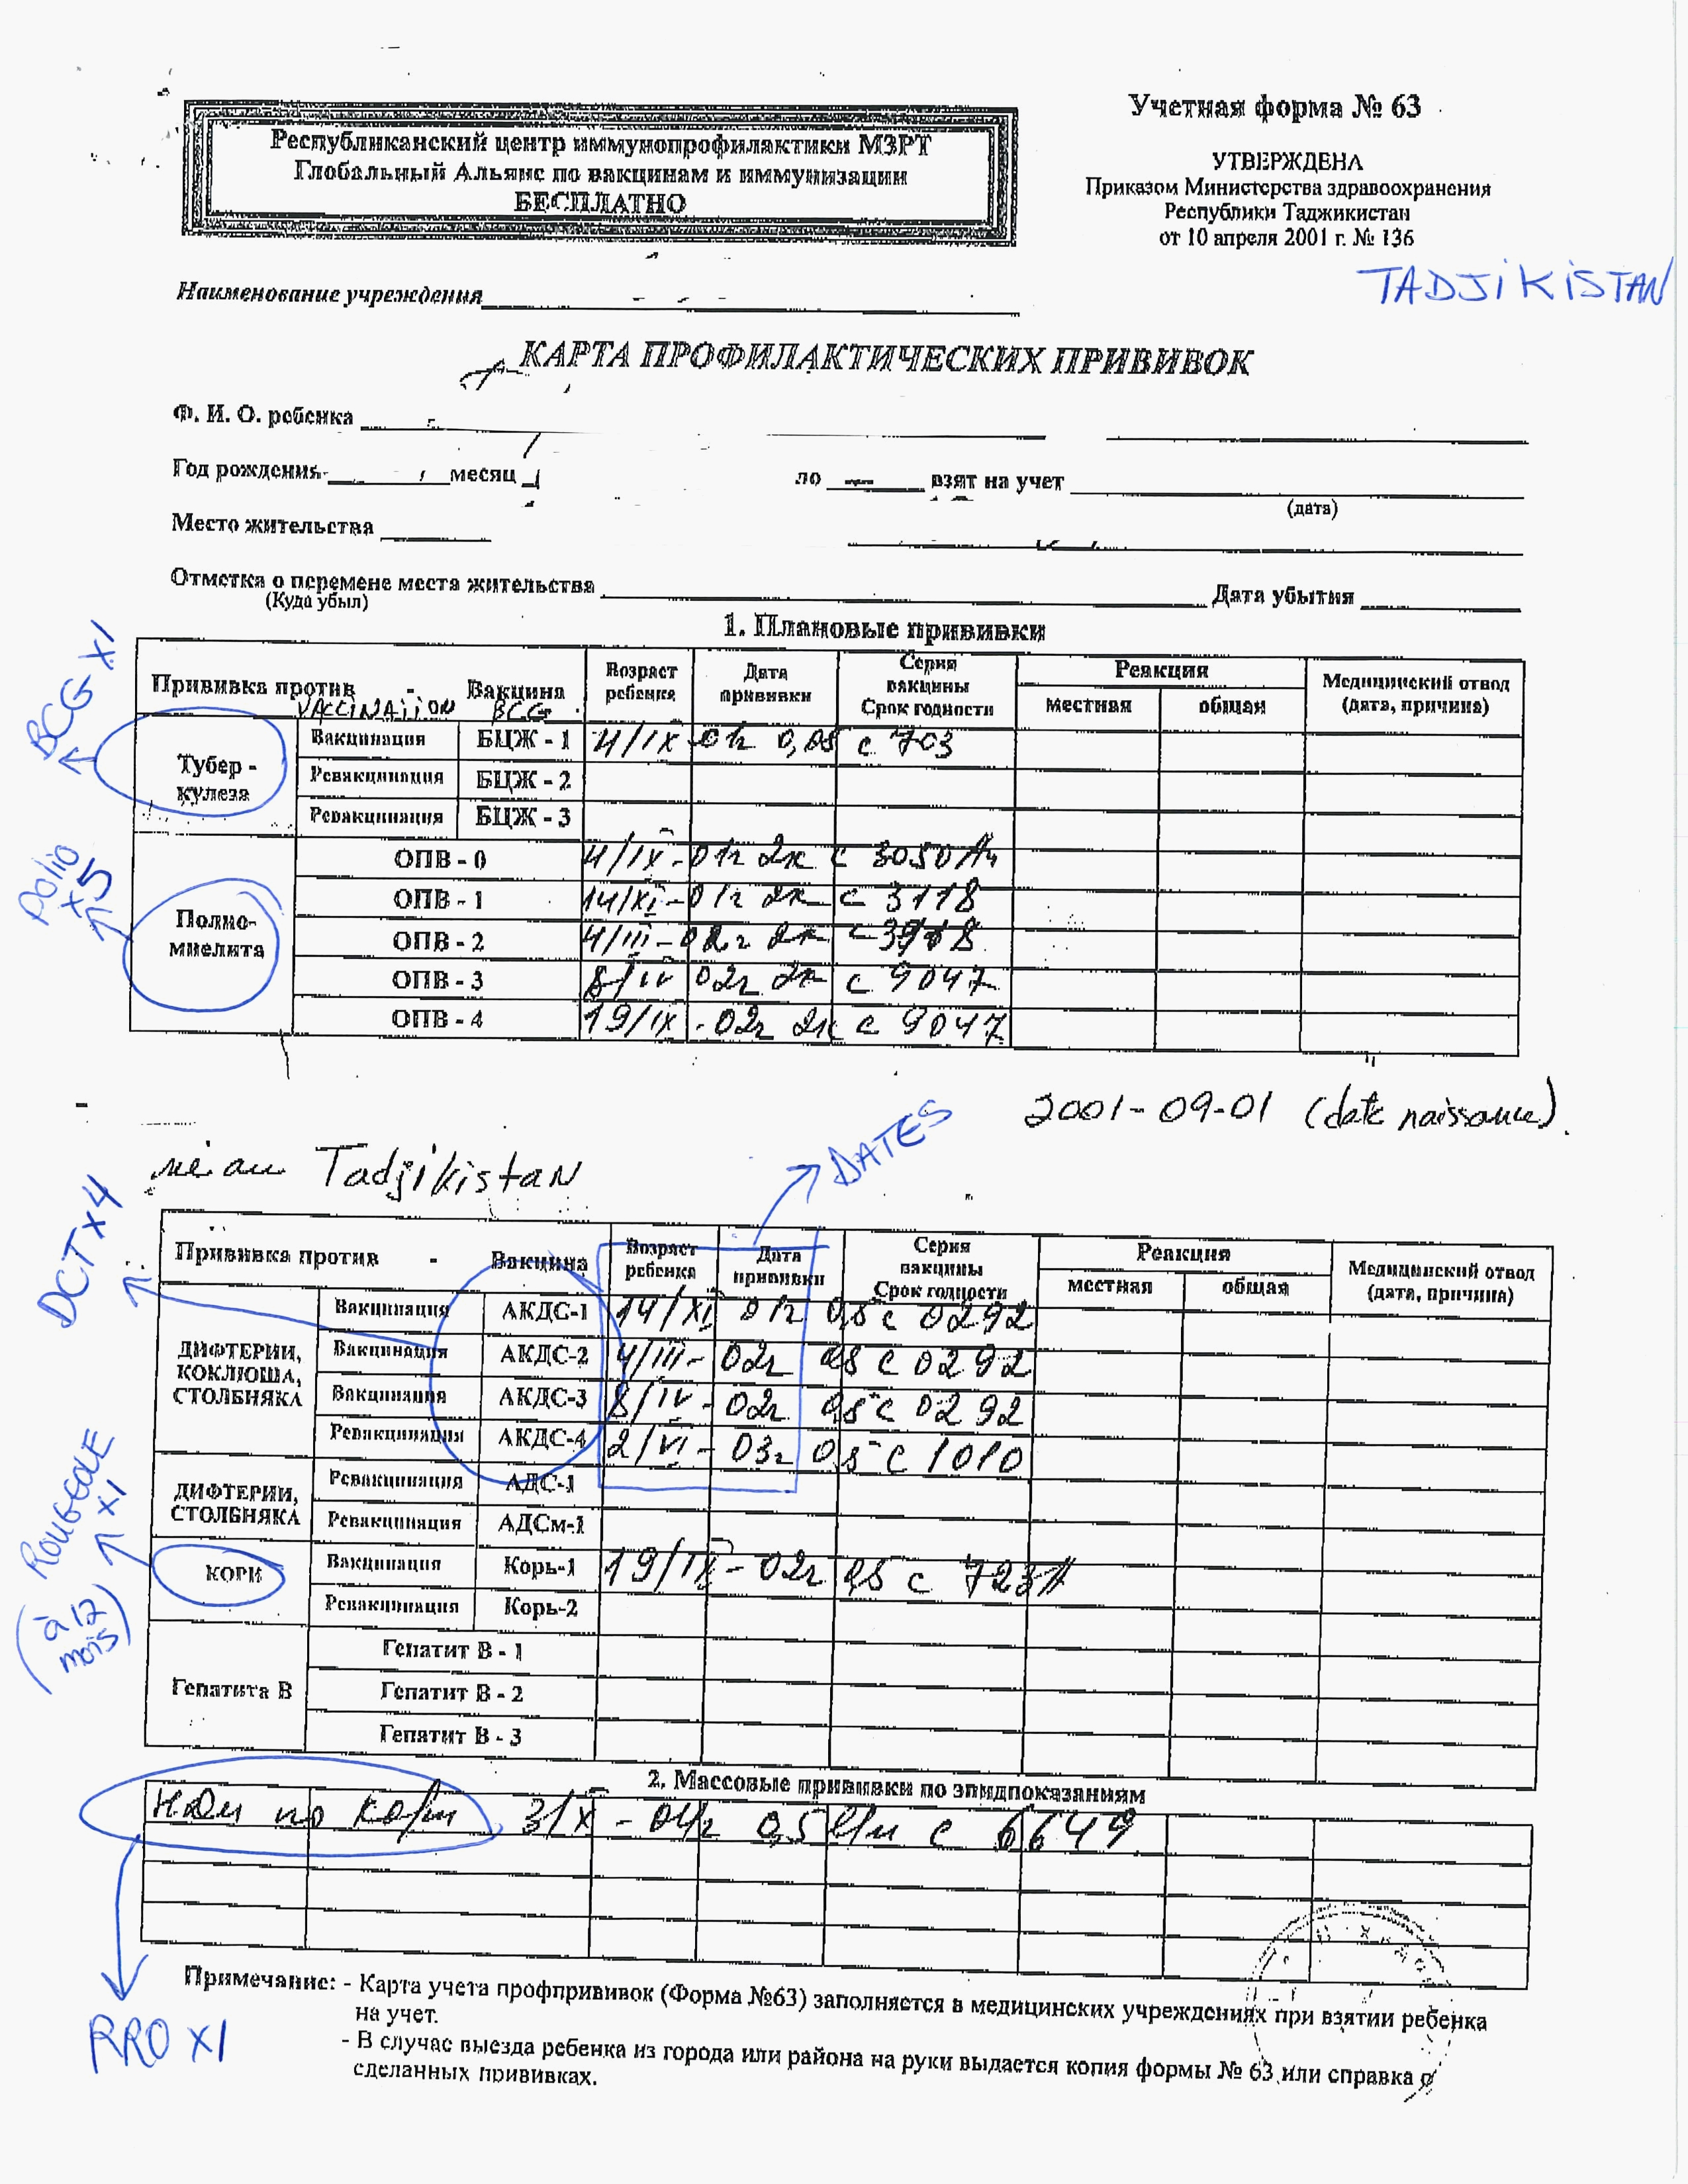 Учетная форма № 63
Республиканский центр иммунопрофилактики МЗРТ
Глобальный Альянс по вакцинам и иммунизации
БЕСПЛАТНО
УТВЕРЖДЕНА
Приказом Министерства здравоохранения
Республики Таджикистан
от 10 апреля 2001 г. № 136
TADJIKISTAN
Наименование учреждения
КАРТА ПРОФИЛАКТИЧЕСКИХ ПРИВИВОК
Ф. И. О. ребенка
Год рождения месяц ло взят на учет
(дата)
Место жительства
Отметка о перемене места жительства Дата убытия
(Куда убыл)
1. Плановые прививки
BCG x1
Прививка против - Вакцина Возраст ребенка Дата прививки Серия вакцины Срок годности Реакция местная общая Медицинский отвод (дата, причина)
VACCINATION BCG
Тубер-кулеза
Вакцинация БЦЖ - 1 4/IX 01г 0,05 с 703
Ревакцинация БЦЖ - 2
Ревакцинация БЦЖ - 3
Polio x5
Полио-миелита
ОПВ - 0 4/IX-01г 2к с 3050
ОПВ - 1 14/XI-01г 2к с 3118
ОПВ - 2 4/III-02г 2к с
ОПВ - 3 8/IV 02г 2к с 9047
ОПВ - 4 19/IX-02г 2к с 9047
2001-09-01 (date naissance).
né au Tadjikistan
DATES
DCT x4
Прививка против - Вакцина Возраст ребенка Дата прививки Серия вакцины Срок годности Реакция местная общая Медицинский отвод (дата, причина)
ДИФТЕРИИ, КОКЛЮША, СТОЛБНЯКА
Вакцинация АКДС-1 14/XI 01г 0,5 с 0292
Вакцинация АКДС-2 4/III-02г 0,5 с 0292
Вакцинация АКДС-3 8/IV-02г 0,5 с 0292
Ревакцинация АКДС-4 2/VI-03г 0,5 с 1010
ДИФТЕРИИ, СТОЛБНЯКА
Ревакцинация АДС-1
Ревакцинация АДСм-1
ROUGEOLE x1
(à 12 mois)
КОРИ
Вакцинация Корь-1 19/IX-02г 0,5 с
Ревакцинация Корь-2
Гепатита В
Гепатит В - 1
Гепатит В - 2
Гепатит В - 3
2. Массовые прививки по эпидпоказаниям
по 3/X-04г 0,5 с 6649
RRO x1
Примечание: - Карта учета профпрививок (Форма №63) заполняется в медицинских учреждениях при взятии ребенка
на учет.
- В случае выезда ребенка из города или района на руки выдается копия формы № 63 или справка о
сделанных прививках.